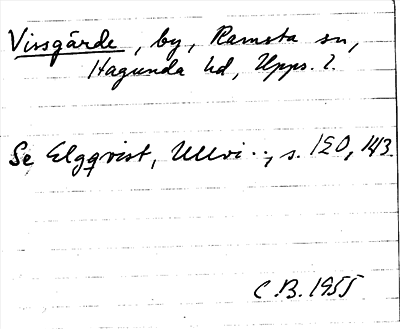 Vissgärde, by, Ramsta sn,
Hagunda hd, Upps. l.
Se Elgqvist, Ullvi.., s. 120, 143.
C.B. 1955